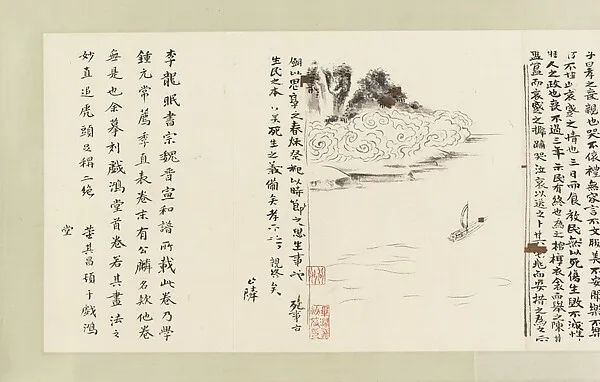 之喪親也哭不偯禮無容言不文服美不安聞樂不樂
不甘此哀慼之情也三日而食教民無以死傷生毀不滅性
人之政也喪不過三年示民有終也為之棺槨衣衾而舉之陳其
簠簋而哀慼之擗踊哭泣哀以送之卜其兆而安措之為之宗
廟以享之春秋祭祀以時思之生事死事
生民之本矣死生之義備矣孝親終矣
公麟
李龍眠書宗魏晉宣和譜所載此卷乃學
鍾元常薦季直表卷末有公麟名款他卷
無是也余摹刻戲鴻堂首卷若其畫法之
妙直追虎頭足稱二絕 董其昌題于戲鴻
堂